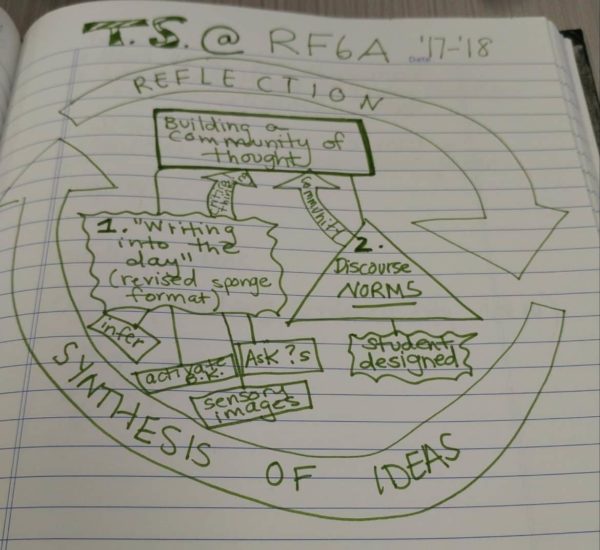 T.S. @ RF6A '17-'18
Date
REFLECTION
Building a
community of
thought
community
1. "Writing
into the
day"
(revised sponge
format)
2.
Discourse
NORMS
infer
activate
B.K.
Ask ?s
sensory
images
student
designed
SYNTHESIS OF IDEAS